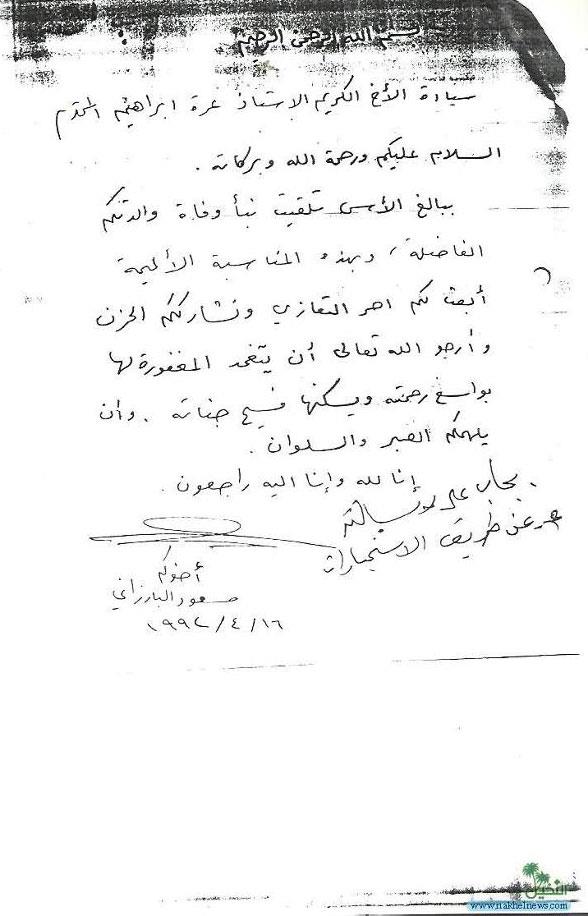 بسم الله الرحمن الرحيم
سيادة الأخ الكريم الاستاذ عزة ابراهيم المحترم
السلام عليكم ورحمة الله وبركاته .
ببالغ الأسى تلقيت نبأ وفاة والدتكم
الفاضلة ، وبهذه المناسبة الأليمة
أبعث لكم احر التعازي ونشارككم الحزن
وأرجو الله تعالى أن يتغمد المغفورة لها
بواسع رحمته ويسكنها فسيح جناته . وان
يلهمكم الصبر والسلوان .
إنا لله وإنا اليه راجعون .
يجاب على رسالته
عن طريق الاستخبارات
أخوكم
مسعود البارزاني
١٩٩٢/٤/١٦
النخيل
www.nakhelnews.com